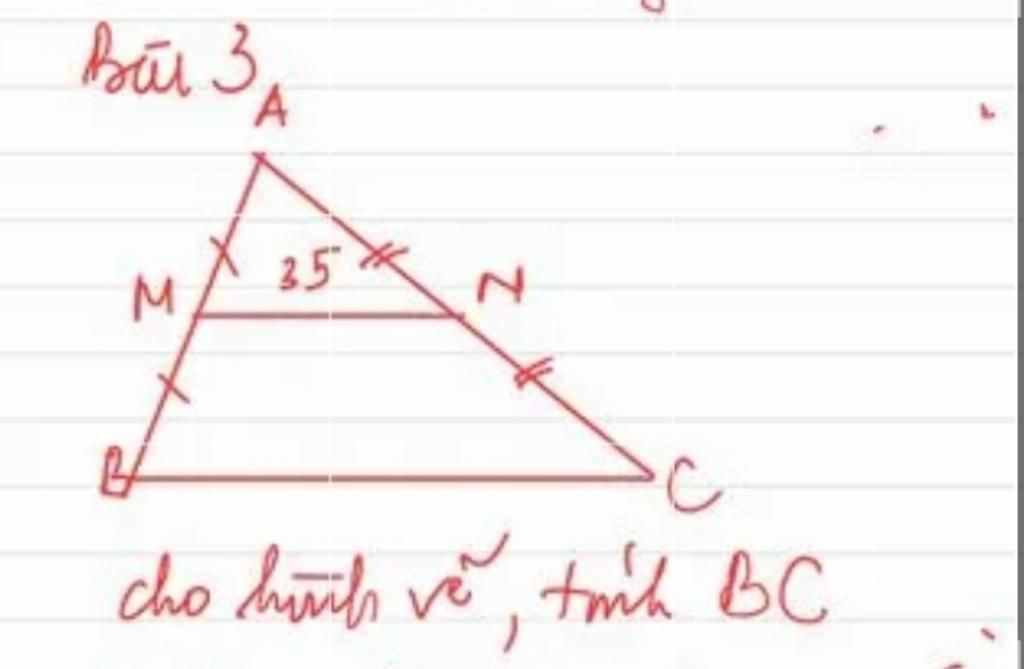 Bài 3
A
35
M
N
B
C
cho hình vẽ, tính BC